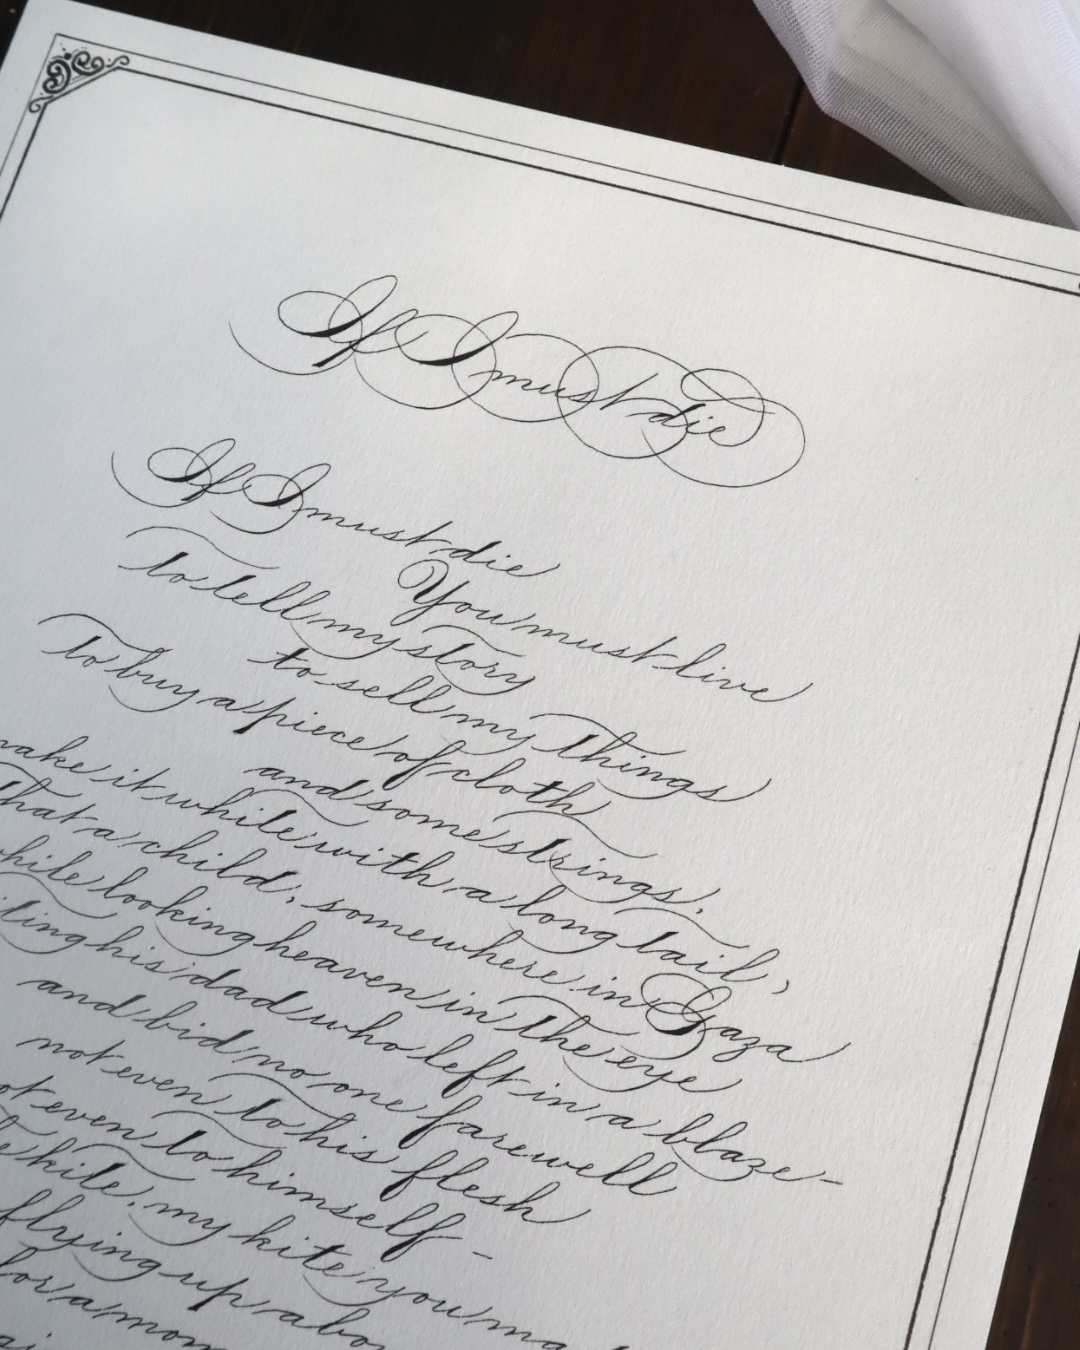 If I must die
If I must die
You must live
to tell my story
to sell my things
to buy a piece of cloth
and some strings,
make it white with a long tail,
that a child, somewhere in Gaza
while looking heaven in the eye
his dad who left in a blaze-
and bid no one farewell
not even to his flesh
not even to himself-
kite, my kite you
flying up
for a